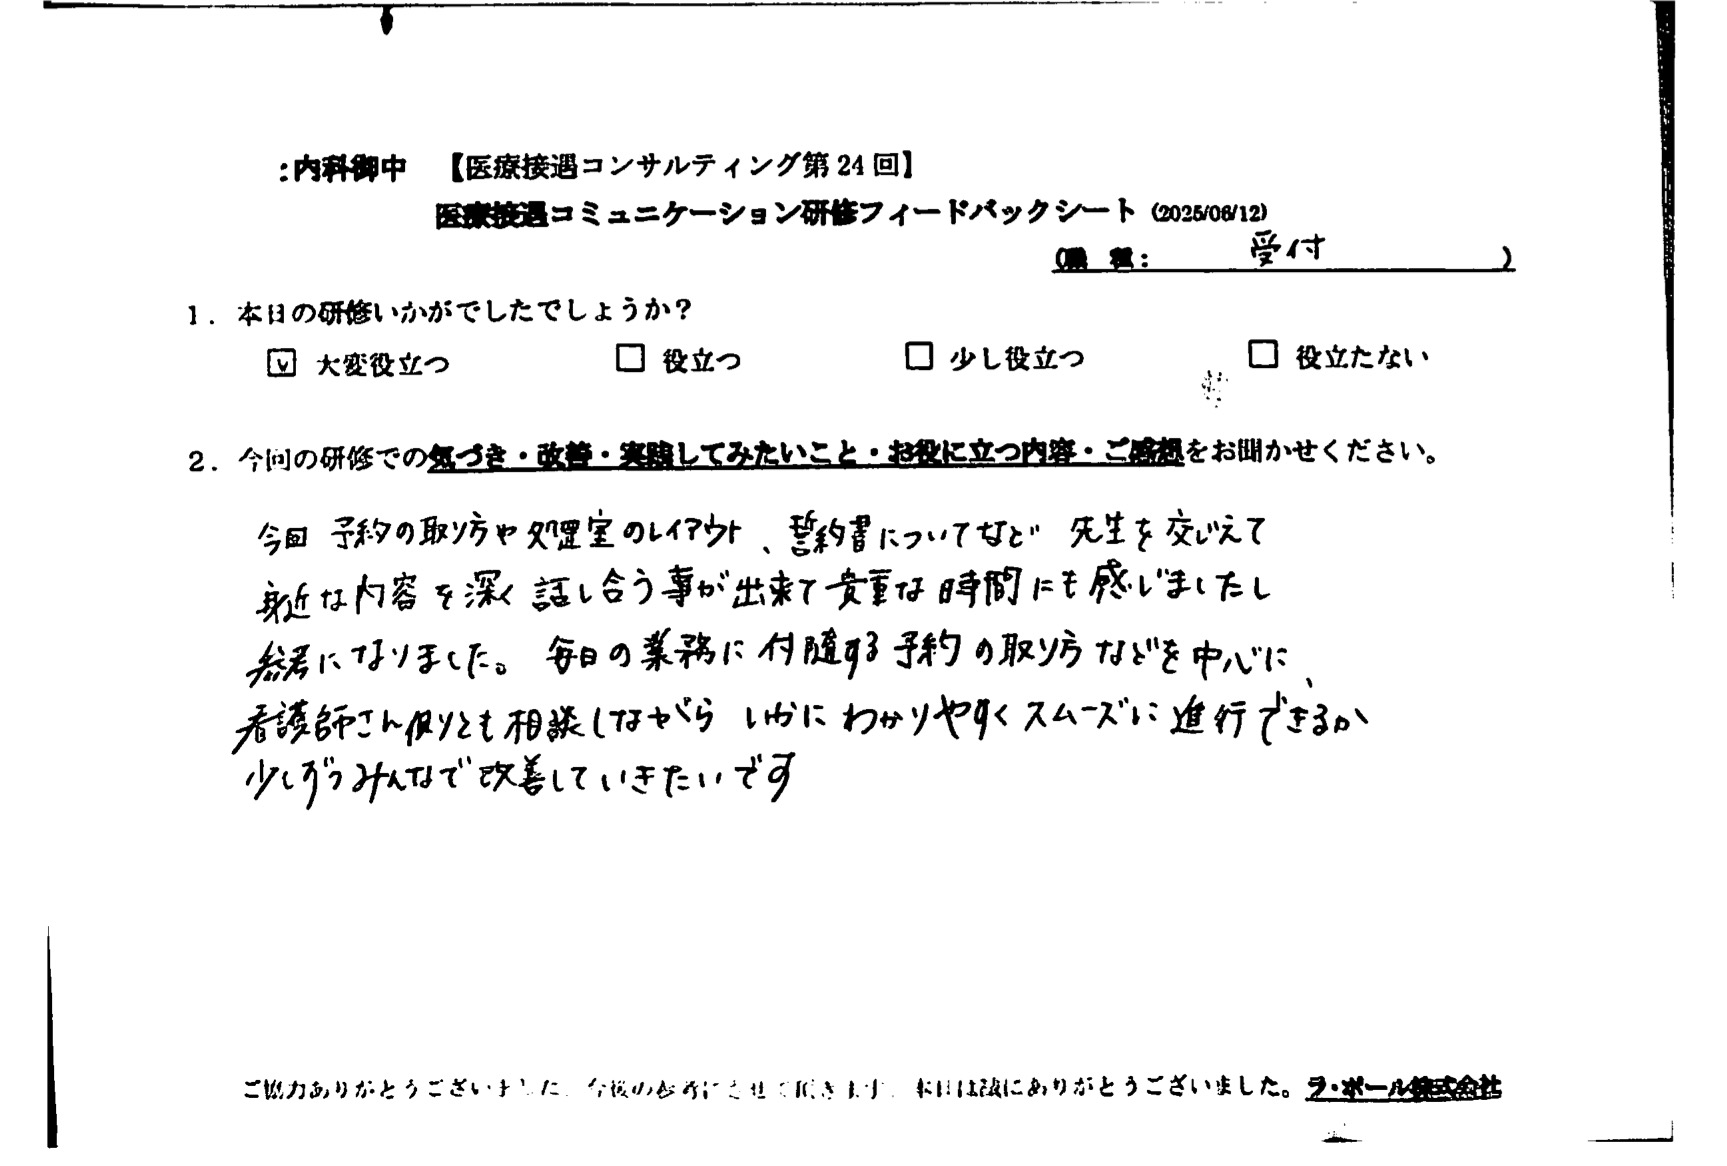 :内科御中 【医療接遇コンサルティング第24回】
医療接遇コミュニケーション研修フィードバックシート (2025/06/12)
(職 種: 受付 )
1. 本日の研修いかがでしたでしょうか?
☑ 大変役立つ □ 役立つ □ 少し役立つ □ 役立たない
2. 今回の研修での気づき・改善・実践してみたいこと・お役に立つ内容・ご感想をお聞かせください。
今回 予約の取り方や処置室のレイアウト、誓約書についてなど 先生を交じえて
身近な内容を深く話し合う事が出来て貴重な時間にも感じましたし
参考になりました。 毎日の業務に付随する予約の取り方などを中心に、
看護師さん側とも相談しながら いかにわかりやすくスムーズに進行できるか
少しずつみんなで改善していきたいです
ご協力ありがとうございました。今後の参考にさせて頂きます。本日は誠にありがとうございました。ラ・ポール株式会社